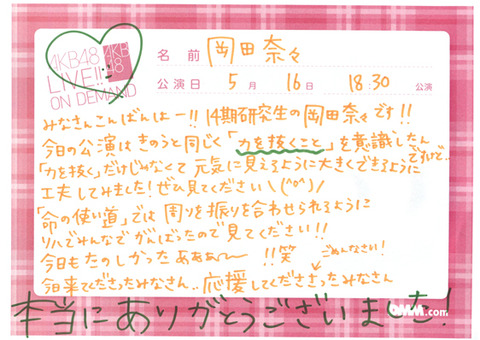 AKB48
LIVE!!
ON DEMAND
AKB
48
名前 岡田奈々
公演日 5月16日 18:30 公演
みなさんこんばんはー!! 14期研究生の岡田奈々です!!
今日の公演はきのうと同じく「力を抜くこと」を意識したん
ですけど..
「力を抜く」だけじゃなくて元気に見えるように大きくできるように
工夫してみました!ぜひ見てください\(^o^)/
「命の使い道」では周りを振りを合わせられるように
リハでみんなでがんばったので見てください!!
今日もたのしかったあぁぁ〜 !!笑
ごめんなさい!
今日来てくださったみなさん..応援してくださきったみなさん
本当にありがとうございました!
DMM.com